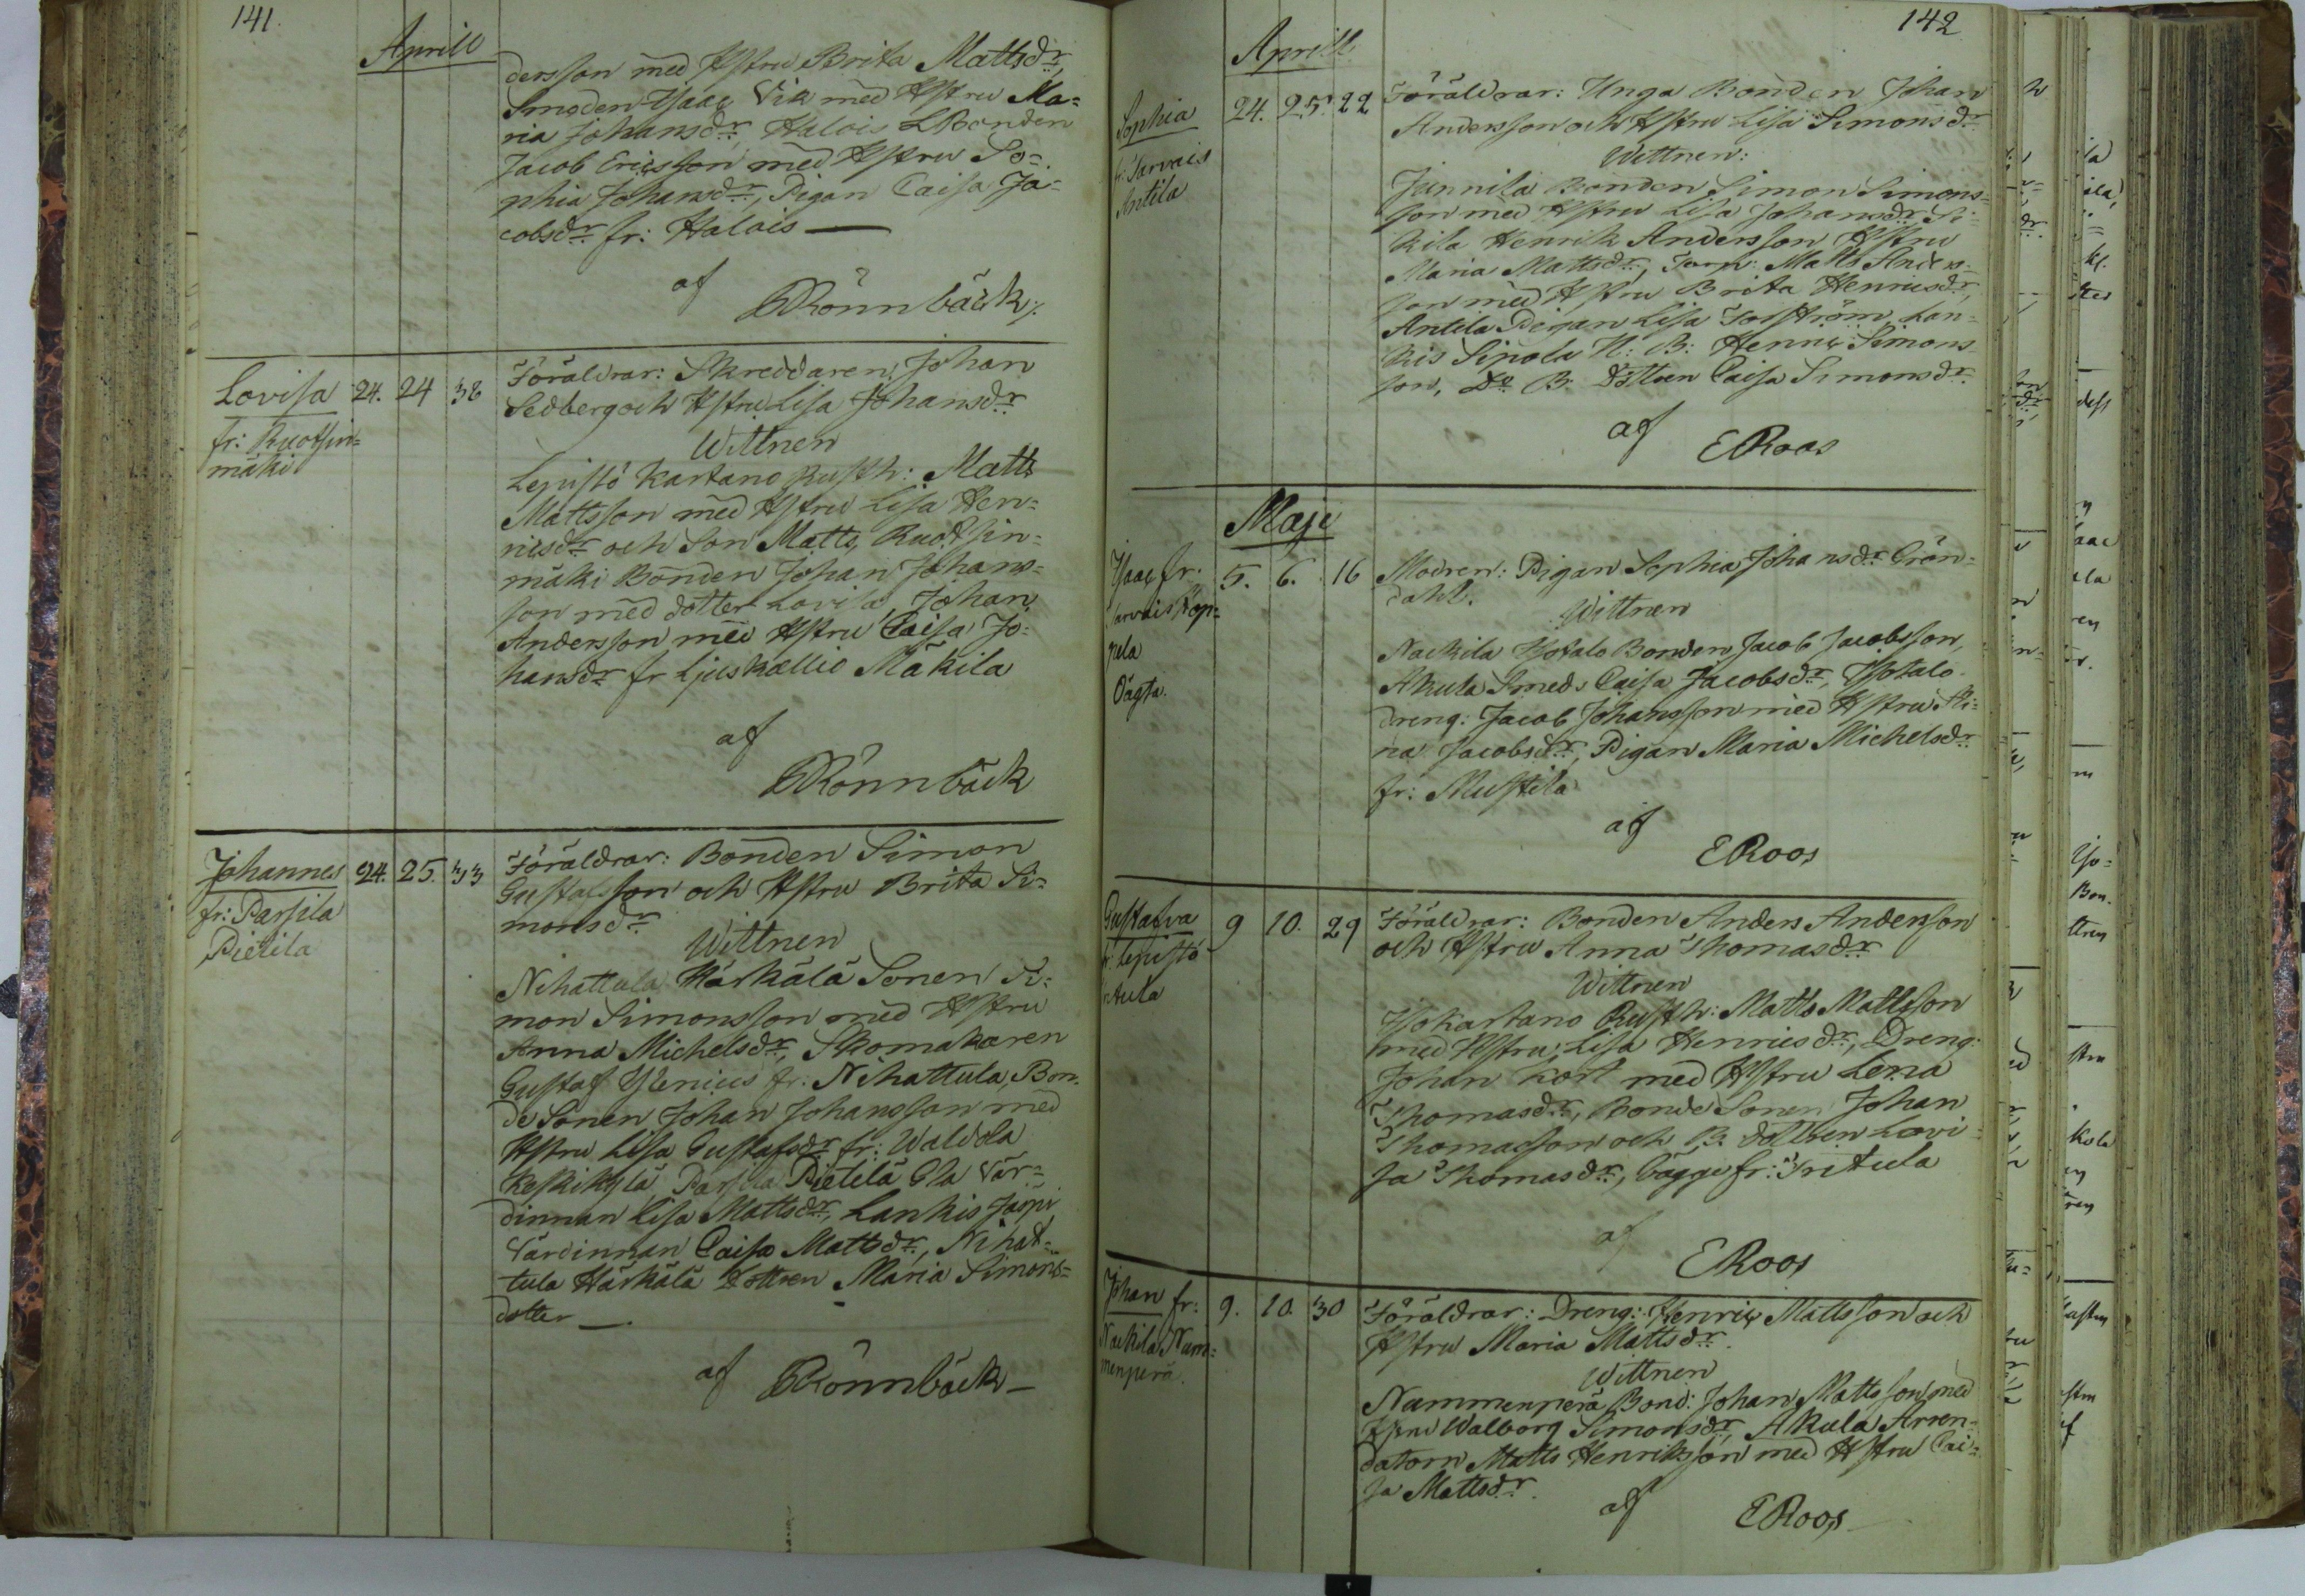 141.
Aprill
dersson med Hstru Brita Mattsdr,
Smeden Isaac Vik med Hstru Ma=
ria Johansdr, Halois LBonden
Jacob Ericsson med Hstru So=
phia Johansdr, Pigan Caisa Ja=
cobsdr fr: Halois —
af
Rönnbäck
Lovisa 24. 24 38 Föräldrar: Skreddaren Johan
Sedberg och Hstru Lisa Johansdr
fr: Ruotsin=
mäki
Wittnen
Lepistö Kartano Rusth: Matts
Mattsson med Hstru Lisa Hen=
ricsdr och Son Matts, Ruotsin=
mäki Bonden Johan Johans=
son med dotter Lovisa, Johan
Andersson med Hstru Caisa Jo=
hansdr fr Ljuskallio Mäkilä
af
Rönnbäck
Johannes 24. 25. 33 Föräldrar: Bonden Simon
fr: Parsila
Pietilä
Gustafsson och Hstru Brita Si=
monsdr
Wittnen
Nihattula Härkälä Sonen Si=
mon Simonsson med Hstru
Anna Michelsdr, Skomakaren
Gustaf Ylenius fr: Nihattula, Bon=
de Sonen Johan Johansson med
Hstru Lisa Gustafsdr fr: Waldola
Keskikylä, Parsila Pietilä Gla Vär=
dinnan Lisa Mattsdr, Lankis Jaspi
Värdinnan Caisa Mattsdr, Nihat=
tula Härkälä Dottren Maria Simons=
dotter —.
af Rönnbäck —
142
Aprill
Sophia 24. 25. 22 Föräldrar: Unga Bonden Johan
fr: Sarvais
Antila
Andersson och Hstru Lisa Simonsdr
Wittnen:
Junnila Bonden Simon Simons=
son med Hstru Lisa Johansdr, Si=
kila Henrik Andersson Hstru
Maria Mattsdr, Torp: Matts Anders=
son med Hstru Brita Henricsdr,
Antila Pigan Lisa Forsström, Lan=
kis Sipola N: B: Henric Simons=
son, Do B. Dottren Caisa Simonsdr.
af
ERoos
Maji
Isaac fr. 5. 6. 16 Modren: Pigan Sophia Johansdr Grön=
Sarvais Kop=
pela
Oägta.
dahl.
Wittnen
Nackila Isotalo Bonden Jacob Jacobsson,
Akula Smeds Caisa Jacobsdr, Isotalo
dreng: Jacob Johansson med Hstru Sti=
na Jacobsdr, Pigan Maria Michelsdr
fr: Mustila
af
ERoos
Gustafva 9 10. 29 Föräldrar: Bonden Anders Andersson
fr: Lepistö
Iritula
och Hstru Anna Thomasdr
Wittnen
Isokartano Rusth: Matts Mattsson
med Hstru Lisa Henricsdr, Dreng:
Johan Kort med Hstru Lena
Thomasdr, Bonde Sonen Johan
Thomasson och B. dottren Lovi=
sa Thomasdr, bägge fr: Iritula
af
ERoos
Johan fr: 9. 10. 30 Föräldrar: Dreng: Henric Mattsson och
Nackila Num=
menperä.
Hstru Maria Mattsdr.
Wittnen
Nummenperä Bond: Johan Mattsson med
Hstru Walborg Simonsdr, Akula Arren=
datorn Matts Henriksson med Hstru Cai=
sa Mattsdr.
af
ERoos